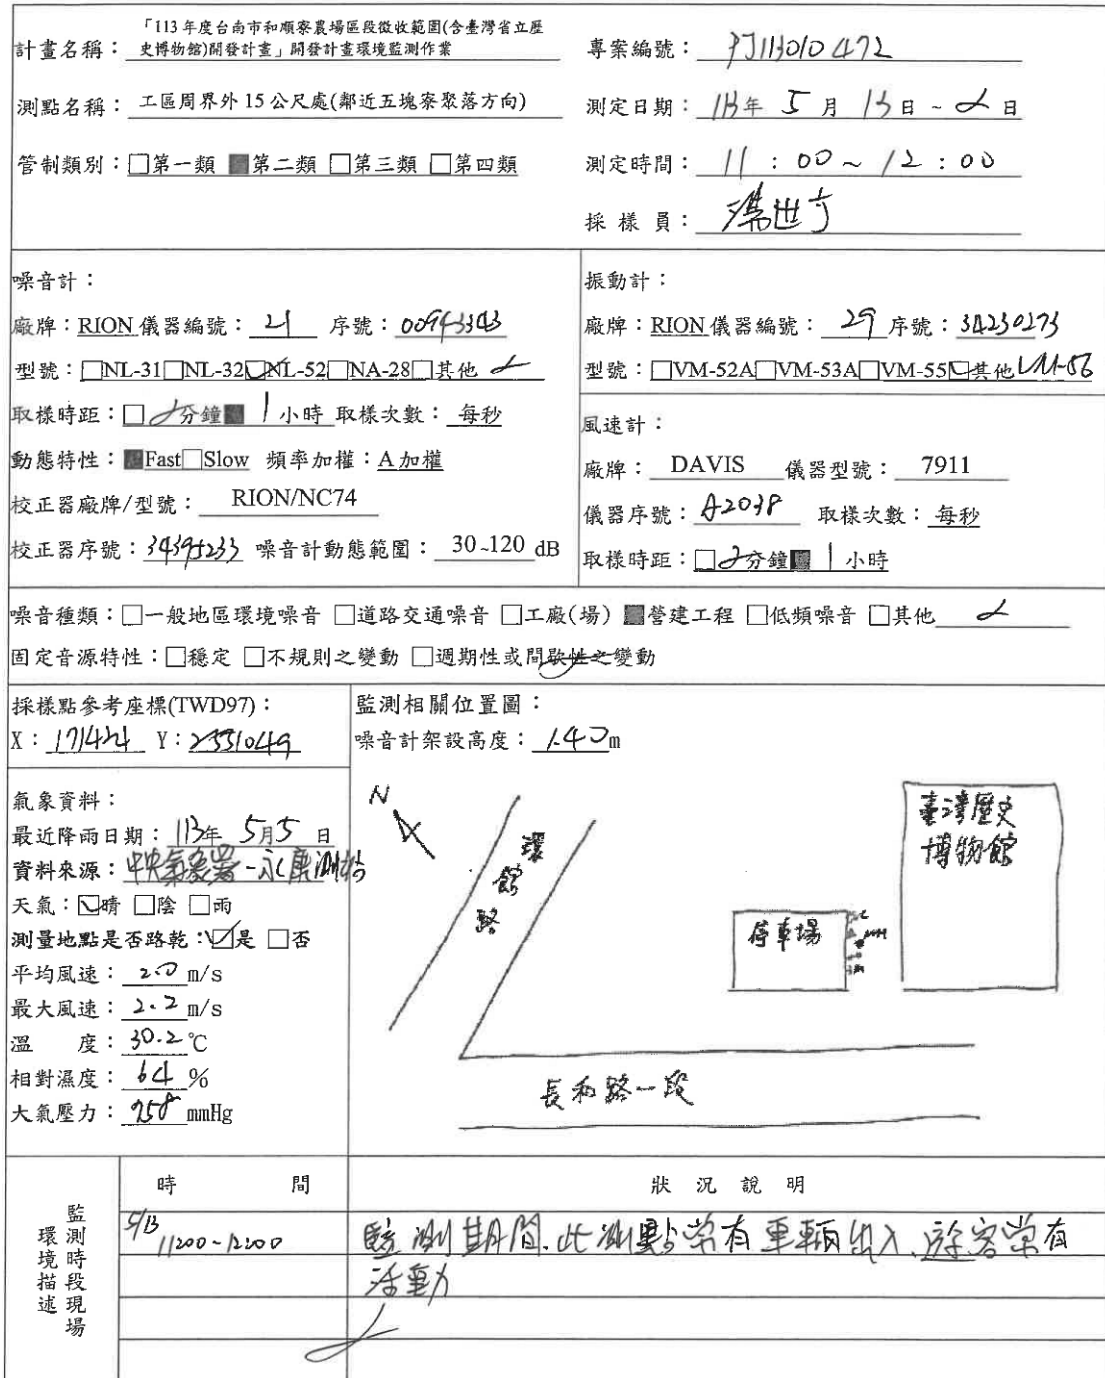 計畫名稱：「113年度台南市和順寮農場區段徵收範圍(含臺灣省立歷
史博物館)開發計畫」開發計畫環境監測作業
專案編號：PJ113010472
測點名稱：工區周界外 15 公尺處(鄰近五塊寮聚落方向)
測定日期：113年 5 月 13 日 ~ 日
管制類別：□第一類 ■第二類 □第三類 □第四類
測定時間：11：00 ~ 12：00
採樣員：
噪音計：
廠牌：RION 儀器編號：21 序號：00943343
型號：□NL-31□NL-32☑NL-52□NA-28□其他
取樣時距：□ 分鐘■ 1 小時 取樣次數：每秒
動態特性：■Fast□Slow 頻率加權：A加權
校正器廠牌/型號：RION/NC74
校正器序號：34395233 噪音計動態範圍：30~120 dB
振動計：
廠牌：RION 儀器編號：29 序號：34230273
型號：□VM-52A□VM-53A□VM-55☑其他 VM-56
風速計：
廠牌：DAVIS 儀器型號：7911
儀器序號：A2038 取樣次數：每秒
取樣時距：□ 分鐘■ 1 小時
噪音種類：□一般地區環境噪音 □道路交通噪音 □工廠(場) ■營建工程 □低頻噪音 □其他
固定音源特性：□穩定 □不規則之變動 □週期性或間歇性之變動
採樣點參考座標(TWD97)：
X：171424 Y：2551049
氣象資料：
最近降雨日期：113年 5月5 日
資料來源：中央氣象署-永康測站
天氣：☑晴 □陰 □雨
測量地點是否路乾：☑是 □否
平均風速：2.0 m/s
最大風速：2.2 m/s
溫 度：30.2 ℃
相對濕度：64 %
大氣壓力：758 mmHg
監測相關位置圖：
噪音計架設高度：1.40 m
N
環館路
臺灣歷史
博物館
停車場
長和路一段
監測時段現場
環境描述
時 間
狀 況 說 明
5/13
11:00~12:00
監測期間,此測點常有車輛出入,遊客常有
活動